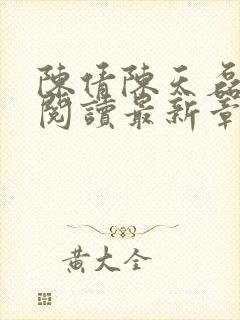 陳倩陳天磊
閱讀最新章
黃大全